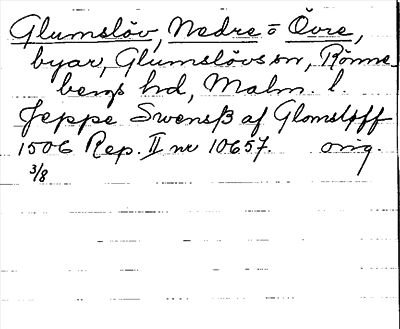 Glumslöv, Nedre = Övre,
byar, Glumslövs sn, Rönne-
bergs hd, Malm. l.
Jeppe Swenß af Glomsløff
1506 Rep. II nr 10657. orig.
3/8